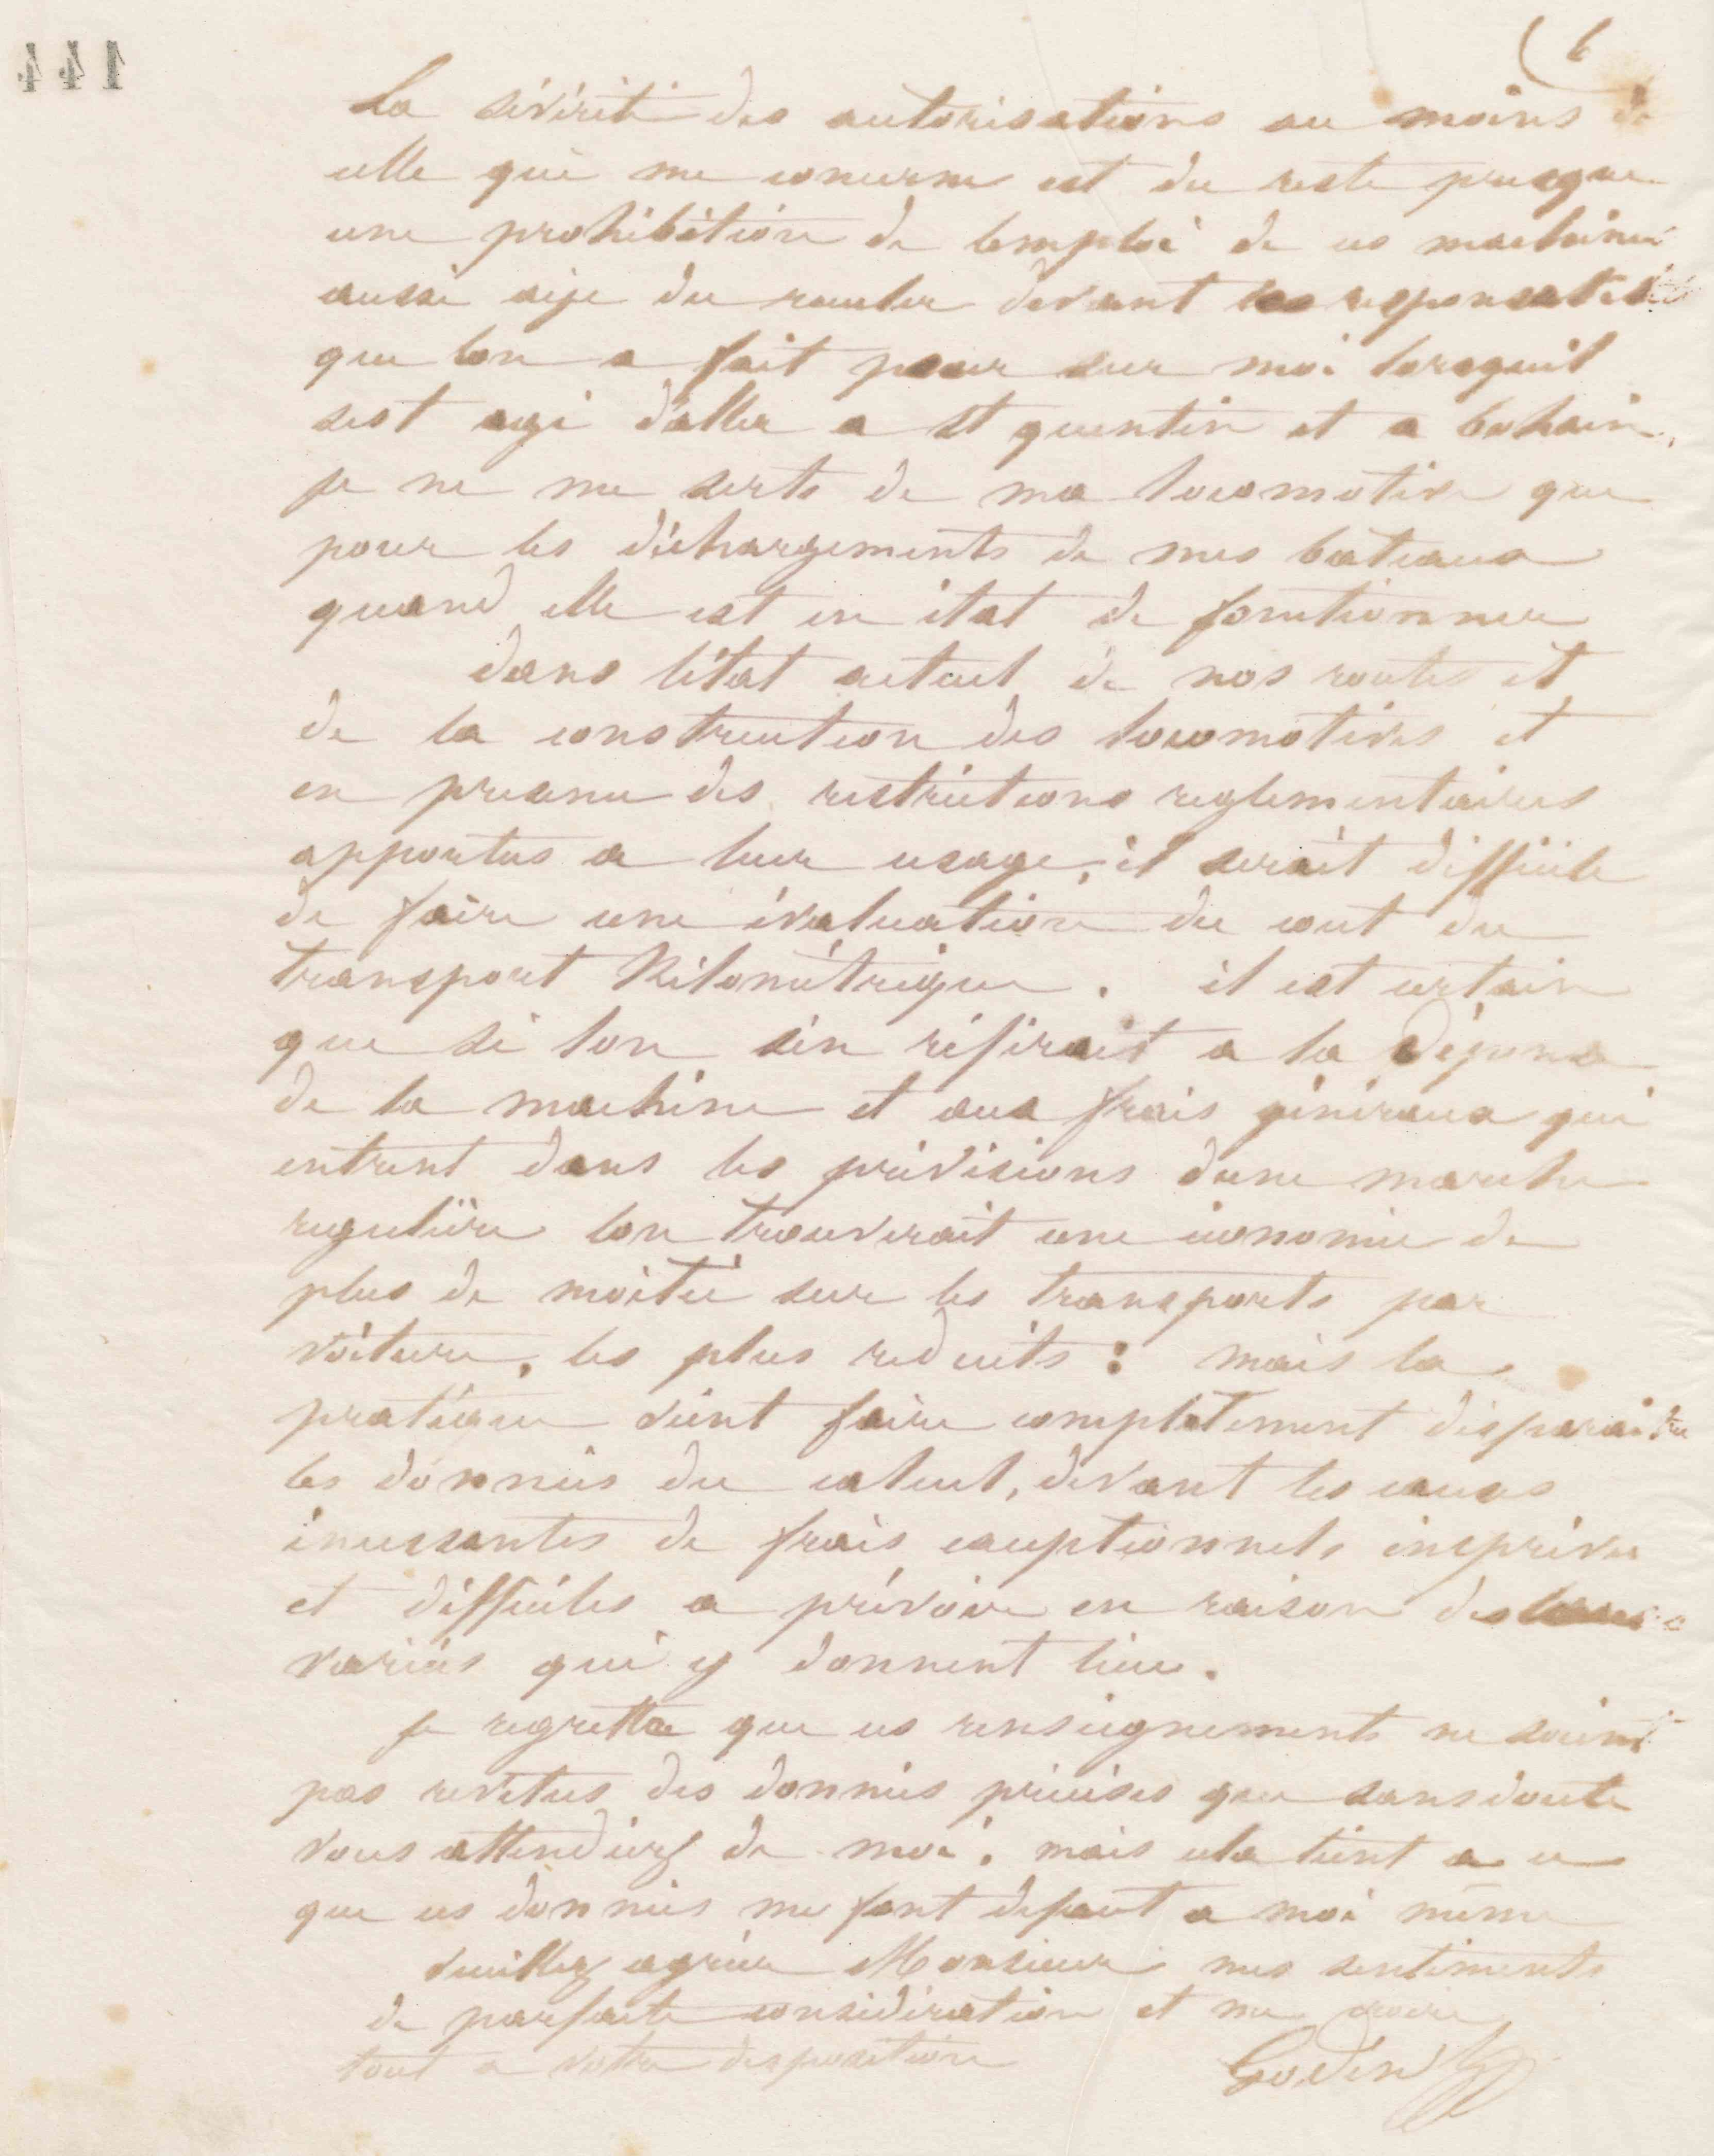 144
(6
La sévérité des autorisations au moins de
celle qui me concerne est du reste presque
une prohibition de lemploi de ces machines
aussi aije du reculer devant les responsabilités
que lon a fait peser sur moi lorsquil
sest agi daller a St quentin et a bohain.
je ne me serts de ma locomotive que
pour les déchargements de mes bateaux
quand elle est en état de fonctionner
dans létat actuel de nos routes et
de la construction des locomotives et
en presence des restrictions reglementaires
apportées a leur usage, il serait difficile
de faire une évaluation du cout du
transport Kilométrique. il est certain
que si lon sén référait a la dépense
de la machine et aux frais généraux qui
entrent dans les prévisions dune marche
regulière lon trouverait une économie de
plus de moitié sur les transports par
voiture, les plus reduits : mais la
pratique vient faire complètement disparaitre
les données du calcul, devant les causes
incessantes de frais exceptionnels imprévus
et difficiles a prévoir en raison des causes
variées qui y donnent lieu.
je regrette que ces renseignements ne soient
pas revetus des données précises que sans doute
vous attendiez de moi. mais cela tient a ce
que ces données me font defaut a moi même
veuillez agréer Monsieur mes sentiments
de parfaite considération et me croire
tout a votre disposition
Godin